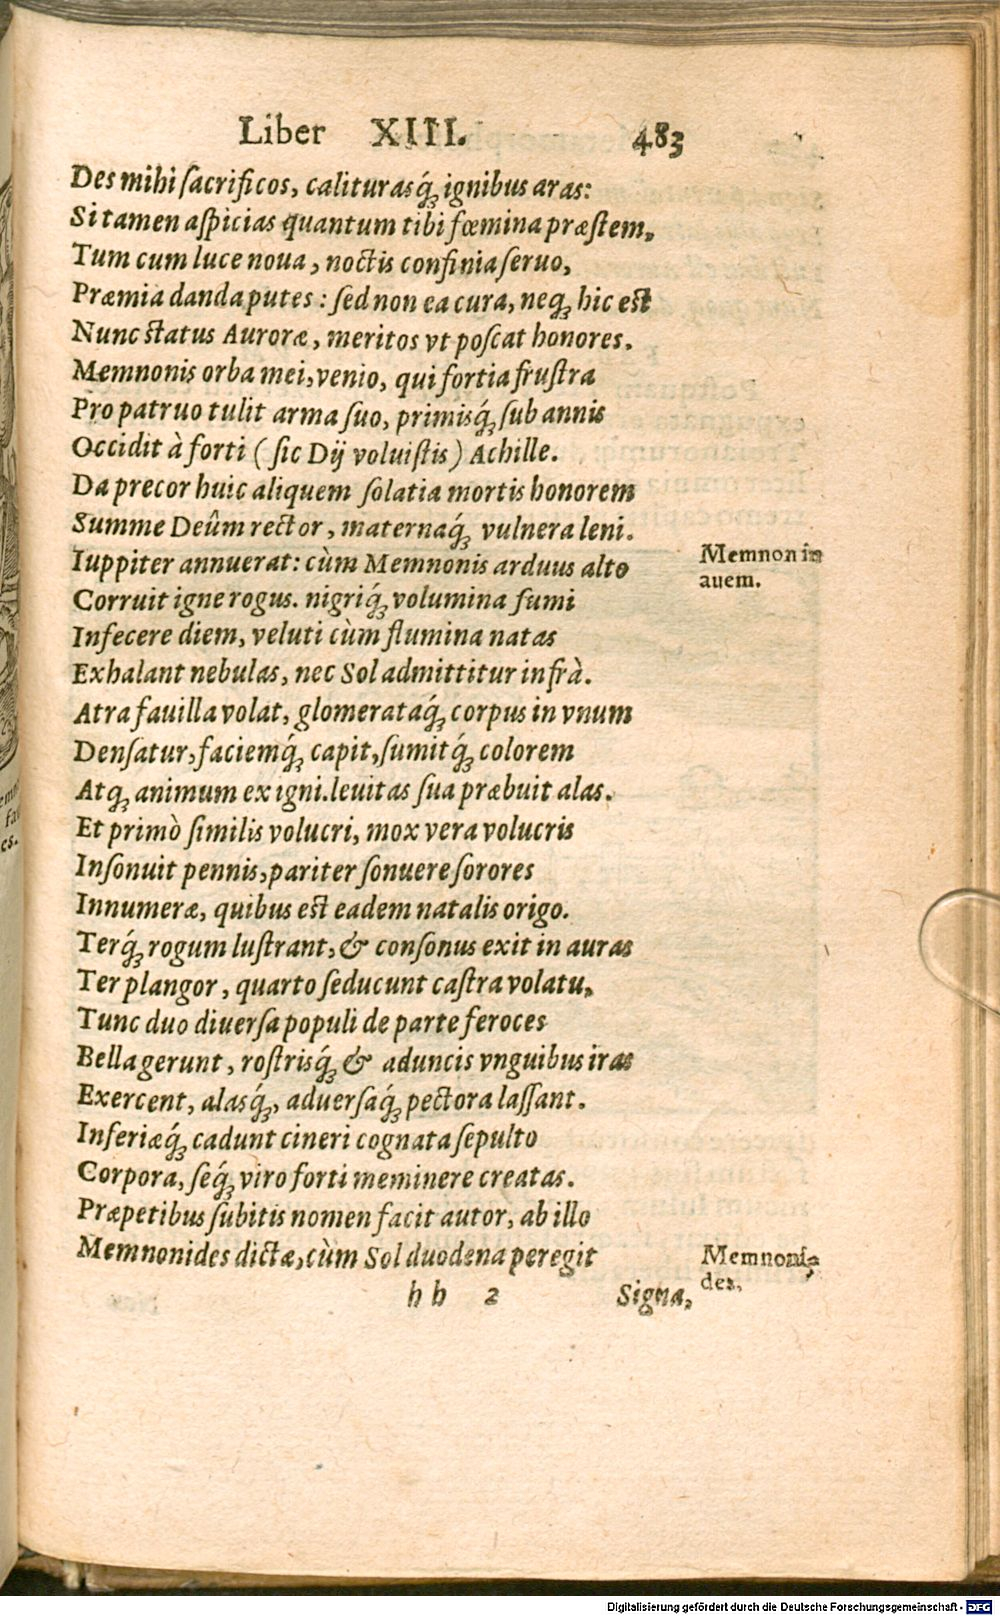 Liber XIII. 483
Des mihi ſacrificos, calituraſq́; ignibus aras:
Si tamen aſpicias quantum tibi fœmina præſtem,
Tum cum luce noua, noctis confinia ſeruo,
Præmia danda putes: ſed non ea cura, neq; hic est
Nunc status Auroræ, meritos vt poſcat honores.
Memnonis orba mei, venio, qui fortia fruſtra
Pro patruo tulit arma ſuo, primisq́; ſub annis
Occidit à forti (ſic Dij voluiſtis) Achille.
Da precor huic aliquem ſolatia mortis honorem
Summe Deûm rector, maternaq́; vulnera leni.
Iuppiter annuerat: cùm Memnonis arduus alto
Corruit igne rogus. nigriq́; volumina fumi
Infecere diem, veluti cùm flumina natas
Exhalant nebulas, nec Sol admittitur infrà.
Atra fauilla volat, glomerataq́; corpus in vnum
Denſatur, faciemq́; capit, ſumitq́; colorem
Atq; animum ex igni. leuitas ſua præbuit alas.
Et primò ſimilis volucri, mox vera volucris
Inſonuit pennis, pariter ſonuere ſorores
Innumeræ, quibus est eadem natalis origo.
Terq́; rogum luſtrant, & conſonus exit in auras
Ter plangor, quarto ſeducunt caſtra volatu,
Tunc duo diuerſa populi de parte feroces
Bella gerunt, roſtrisq́; & aduncis vnguibus iras
Exercent, alasq́;, aduerſaq́; pectora laſſant.
Inferiæq́; cadunt cineri cognata ſepulto
Corpora, ſeq́; viro forti meminere creatas.
Præpetibus ſubitis nomen facit autor, ab illo
Memnonides dictæ, cùm Sol duodena peregit
Memnon in
auem.
Memnoni-
des,
h h 2 Signa,
Digitalisierung gefördert durch die Deutsche Forschungsgemeinschaft - DFG